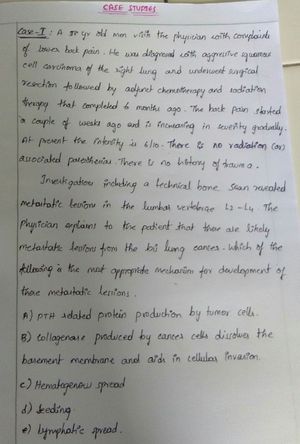 CASE STUDIES
Case-I: A 58 yr old man visits the physician with complaints
of lower back pain. He was diagnosed with aggressive squamous
cell carcinoma of the right lung and underwent surgical
resection followed by adjunct chemotherapy and radiation
therapy that completed 6 months ago. The back pain started
a couple of weeks ago and is increasing in severity gradually.
At present the intensity is 6/10. There is no radiation (or)
associated paresthesias. There is no history of trauma.
Investigations including a technical bone scan revealed
metastatic lesions in the lumbar vertebrae L2-L4. The
Physician explains to the patient that there are likely
metastatic lesions from the his lung cancer. Which of the
following is the most appropriate mechanism for development of
these metastatic lesions.
A) PTH related protein production by tumor cells.
B) Collagenase produced by cancer cells dissolves the
basement membrane and aids in cellular invasion.
c) Hematogenous spread
d) Seeding.
e) Lymphatic spread.